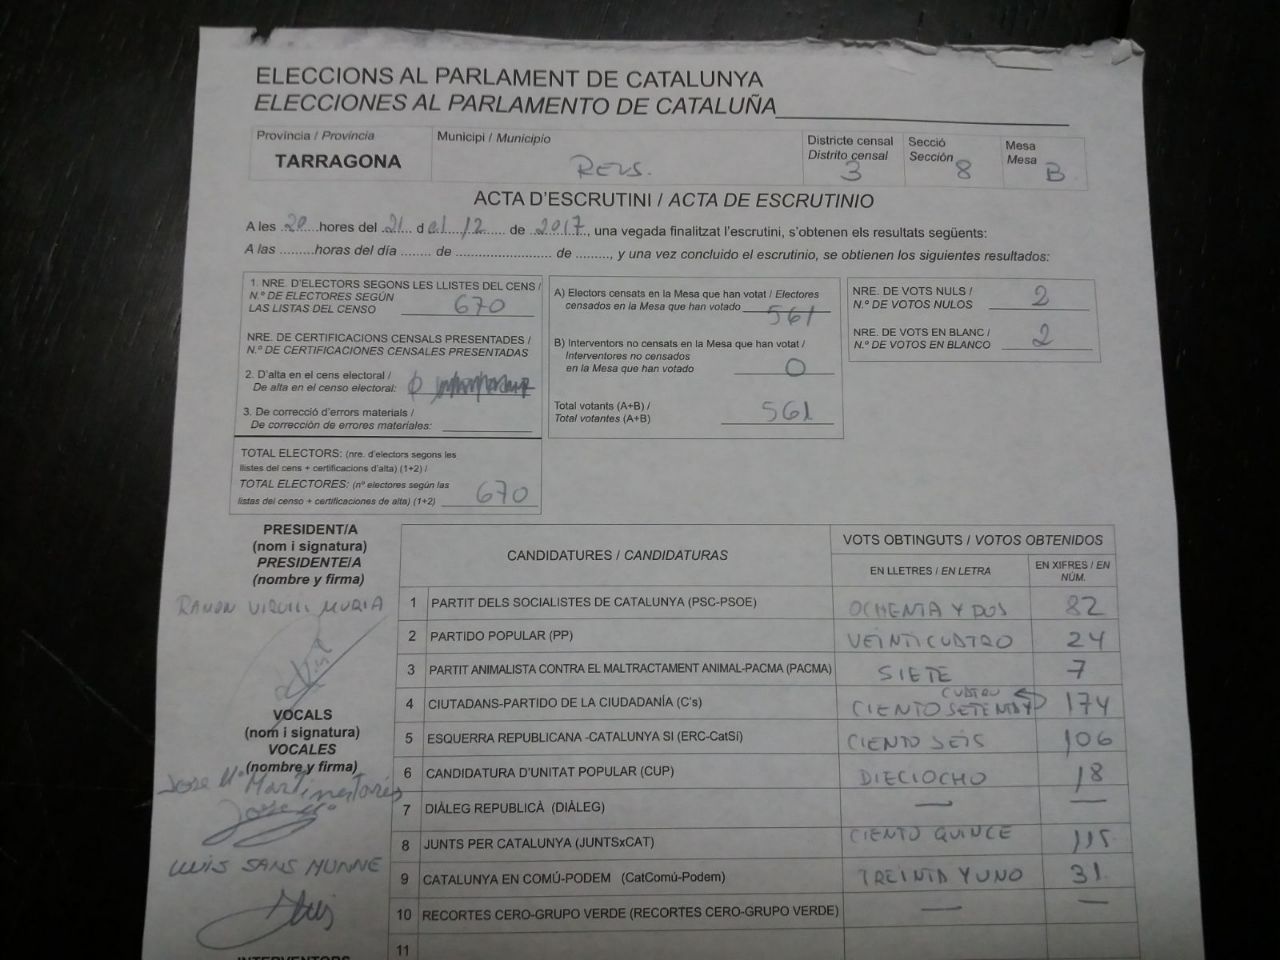 ELECCIONS AL PARLAMENT DE CATALUNYA
ELECCIONES AL PARLAMENTO DE CATALUÑA
Província / Provincia
TARRAGONA
Municipi / Municipio
REUS.
Districte censal
Distrito censal
3
Secció
Sección
8
Mesa
Mesa
B
ACTA D'ESCRUTINI / ACTA DE ESCRUTINIO
A les 20 hores del 21 d el 12 de 2017, una vegada finalitzat l'escrutini, s'obtenen els resultats següents:
A las .........horas del día ........ de ......................... de ........., y una vez concluido el escrutinio, se obtienen los siguientes resultados:
1. NRE. D'ELECTORS SEGONS LES LLISTES DEL CENS /
N.º DE ELECTORES SEGÚN
LAS LISTAS DEL CENSO 670
NRE. DE CERTIFICACIONS CENSALS PRESENTADES /
N.º DE CERTIFICACIONES CENSALES PRESENTADAS
2. D'alta en el cens electoral /
De alta en el censo electoral: 0
3. De correcció d'errors materials /
De corrección de errores materiales:
TOTAL ELECTORS: (nre. d'electors segons les
llistes del cens + certificacions d'alta) (1+2) /
TOTAL ELECTORES: (nº electores según las
listas del censo + certificaciones de alta) (1+2) 670
A) Electors censats en la Mesa que han votat / Electores
censados en la Mesa que han votado 561
B) Interventors no censats en la Mesa que han votat /
Interventores no censados
en la Mesa que han votado 0
Total votants (A+B) /
Total votantes (A+B) 561
NRE. DE VOTS NULS /
N.º DE VOTOS NULOS 2
NRE. DE VOTS EN BLANC /
N.º DE VOTOS EN BLANCO 2
PRESIDENT/A
(nom i signatura)
PRESIDENTE/A
(nombre y firma)
RAMON VIRGILI MURIA
VOCALS
(nom i signatura)
VOCALES
(nombre y firma)
Jose Mª Martinez
Jose Mª
LLUIS SANS MUNNE
Lluis
INTERVENTORS
CANDIDATURES / CANDIDATURAS
VOTS OBTINGUTS / VOTOS OBTENIDOS
EN LLETRES / EN LETRA
EN XIFRES / EN
NÚM.
1 PARTIT DELS SOCIALISTES DE CATALUNYA (PSC-PSOE) OCHENTA Y DOS 82
2 PARTIDO POPULAR (PP) VEINTICUATRO 24
3 PARTIT ANIMALISTA CONTRA EL MALTRACTAMENT ANIMAL-PACMA (PACMA) SIETE 7
CUATRO
4 CIUTADANS-PARTIDO DE LA CIUDADANÍA (C's) CIENTO SETENTA Y 174
5 ESQUERRA REPUBLICANA -CATALUNYA SI (ERC-CatSí) CIENTO SEIS 106
6 CANDIDATURA D'UNITAT POPULAR (CUP) DIECIOCHO 18
7 DIÀLEG REPUBLICÀ (DIÀLEG) — —
8 JUNTS PER CATALUNYA (JUNTSxCAT) CIENTO QUINCE 115
9 CATALUNYA EN COMÚ-PODEM (CatComú-Podem) TREINTA Y UNO 31
10 RECORTES CERO-GRUPO VERDE (RECORTES CERO-GRUPO VERDE) — —
11